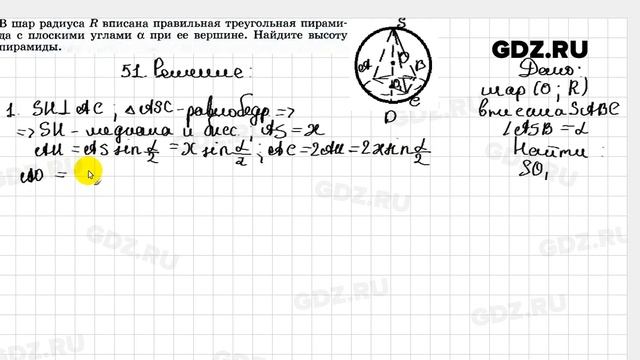 В шар радиуса R вписана правильная треугольная пирами-
да с плоскими углами α при ее вершине. Найдите высоту
пирамиды.
GDZ.RU
51. Решение:
Дано:
шар (O; R)
вписана SABC
∠ASB = α
Найти:
SO₁
S
A
O
B
C
D
1. SH⊥AC; △ASC - равнобедр =>
=> SH - медиана и бисс.; AS = x
AH = AS sin α/2 = x sin α/2; AC = 2AH = 2x sin α/2
AO =
GDZ.RU
GDZ.RU
GDZ.RU
GDZ.RU
GDZ.RU